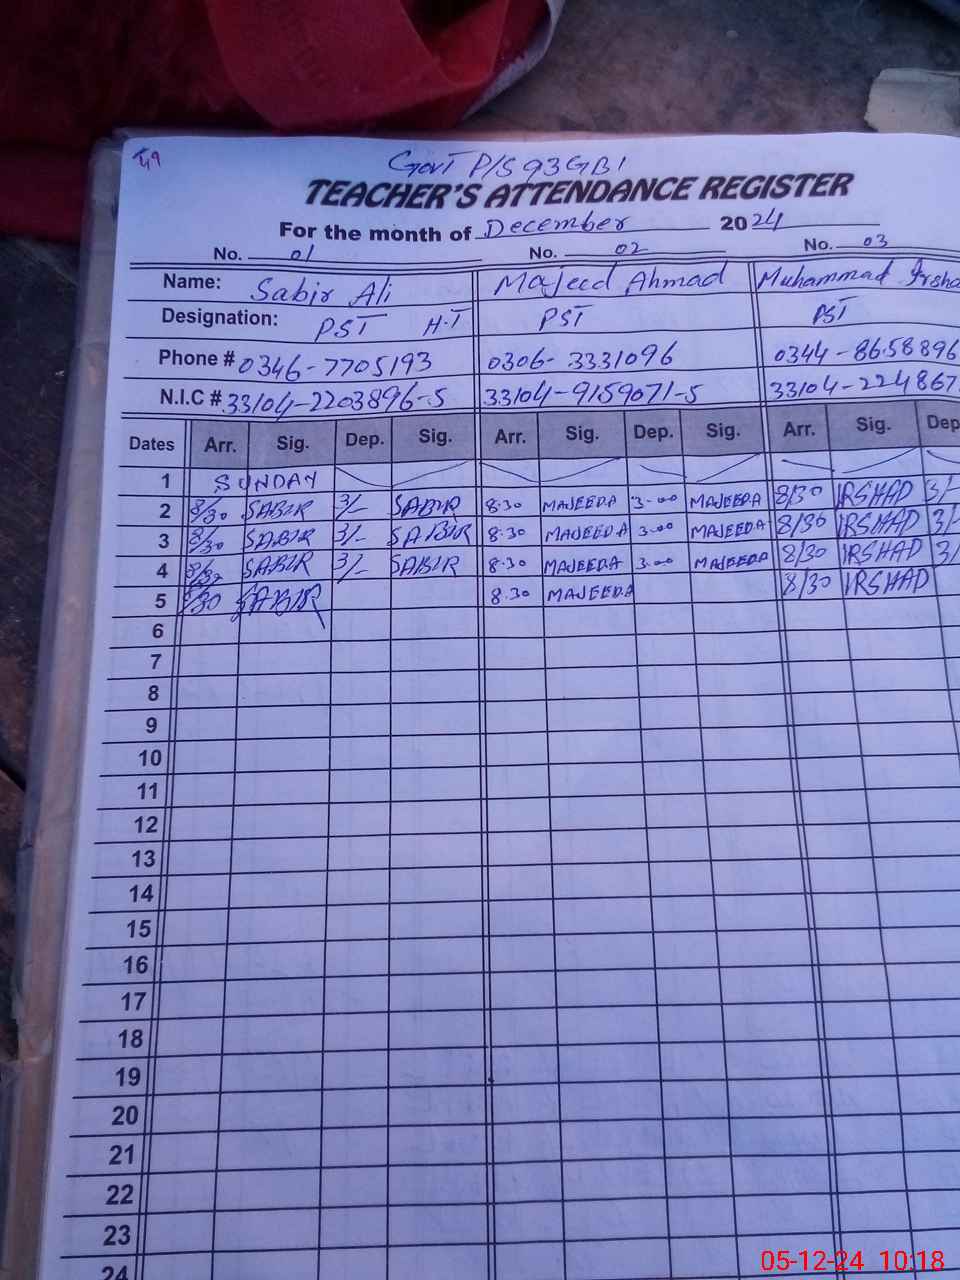 49
Govt P/S 93GB1
TEACHER'S ATTENDANCE REGISTER
For the month of December 2024
No. 01 No. 02 No. 03
Name: Sabir Ali Majeed Ahmad Muhammad Irsha
Designation: PST H.T PST PST
Phone # 0346-7705193 0306-3331096 0344-8658896
N.I.C # 33104-2203896-5 33104-9159071-5 33104-224867
Dates Arr. Sig. Dep. Sig. Arr. Sig. Dep. Sig. Arr. Sig. Dep
1 SUNDAY
2 8/30 SABIR 3/- SABIR 8.30 MAJEEDA 3-00 MAJEEDA 8/30 IRSHAD 3/-
3 8/30 SABIR 3/- SABIR 8.30 MAJEEDA 3-00 MAJEEDA 8/30 IRSHAD 3/-
4 8/30 SABIR 3/- SABIR 8.30 MAJEEDA 3-00 MAJEEDA 8/30 IRSHAD 3/
5 8/30 SABIR 8.30 MAJEEDA 8/30 IRSHAD
6
7
8
9
10
11
12
13
14
15
16
17
18
19
20
21
22
23
24
05-12-24 10:18